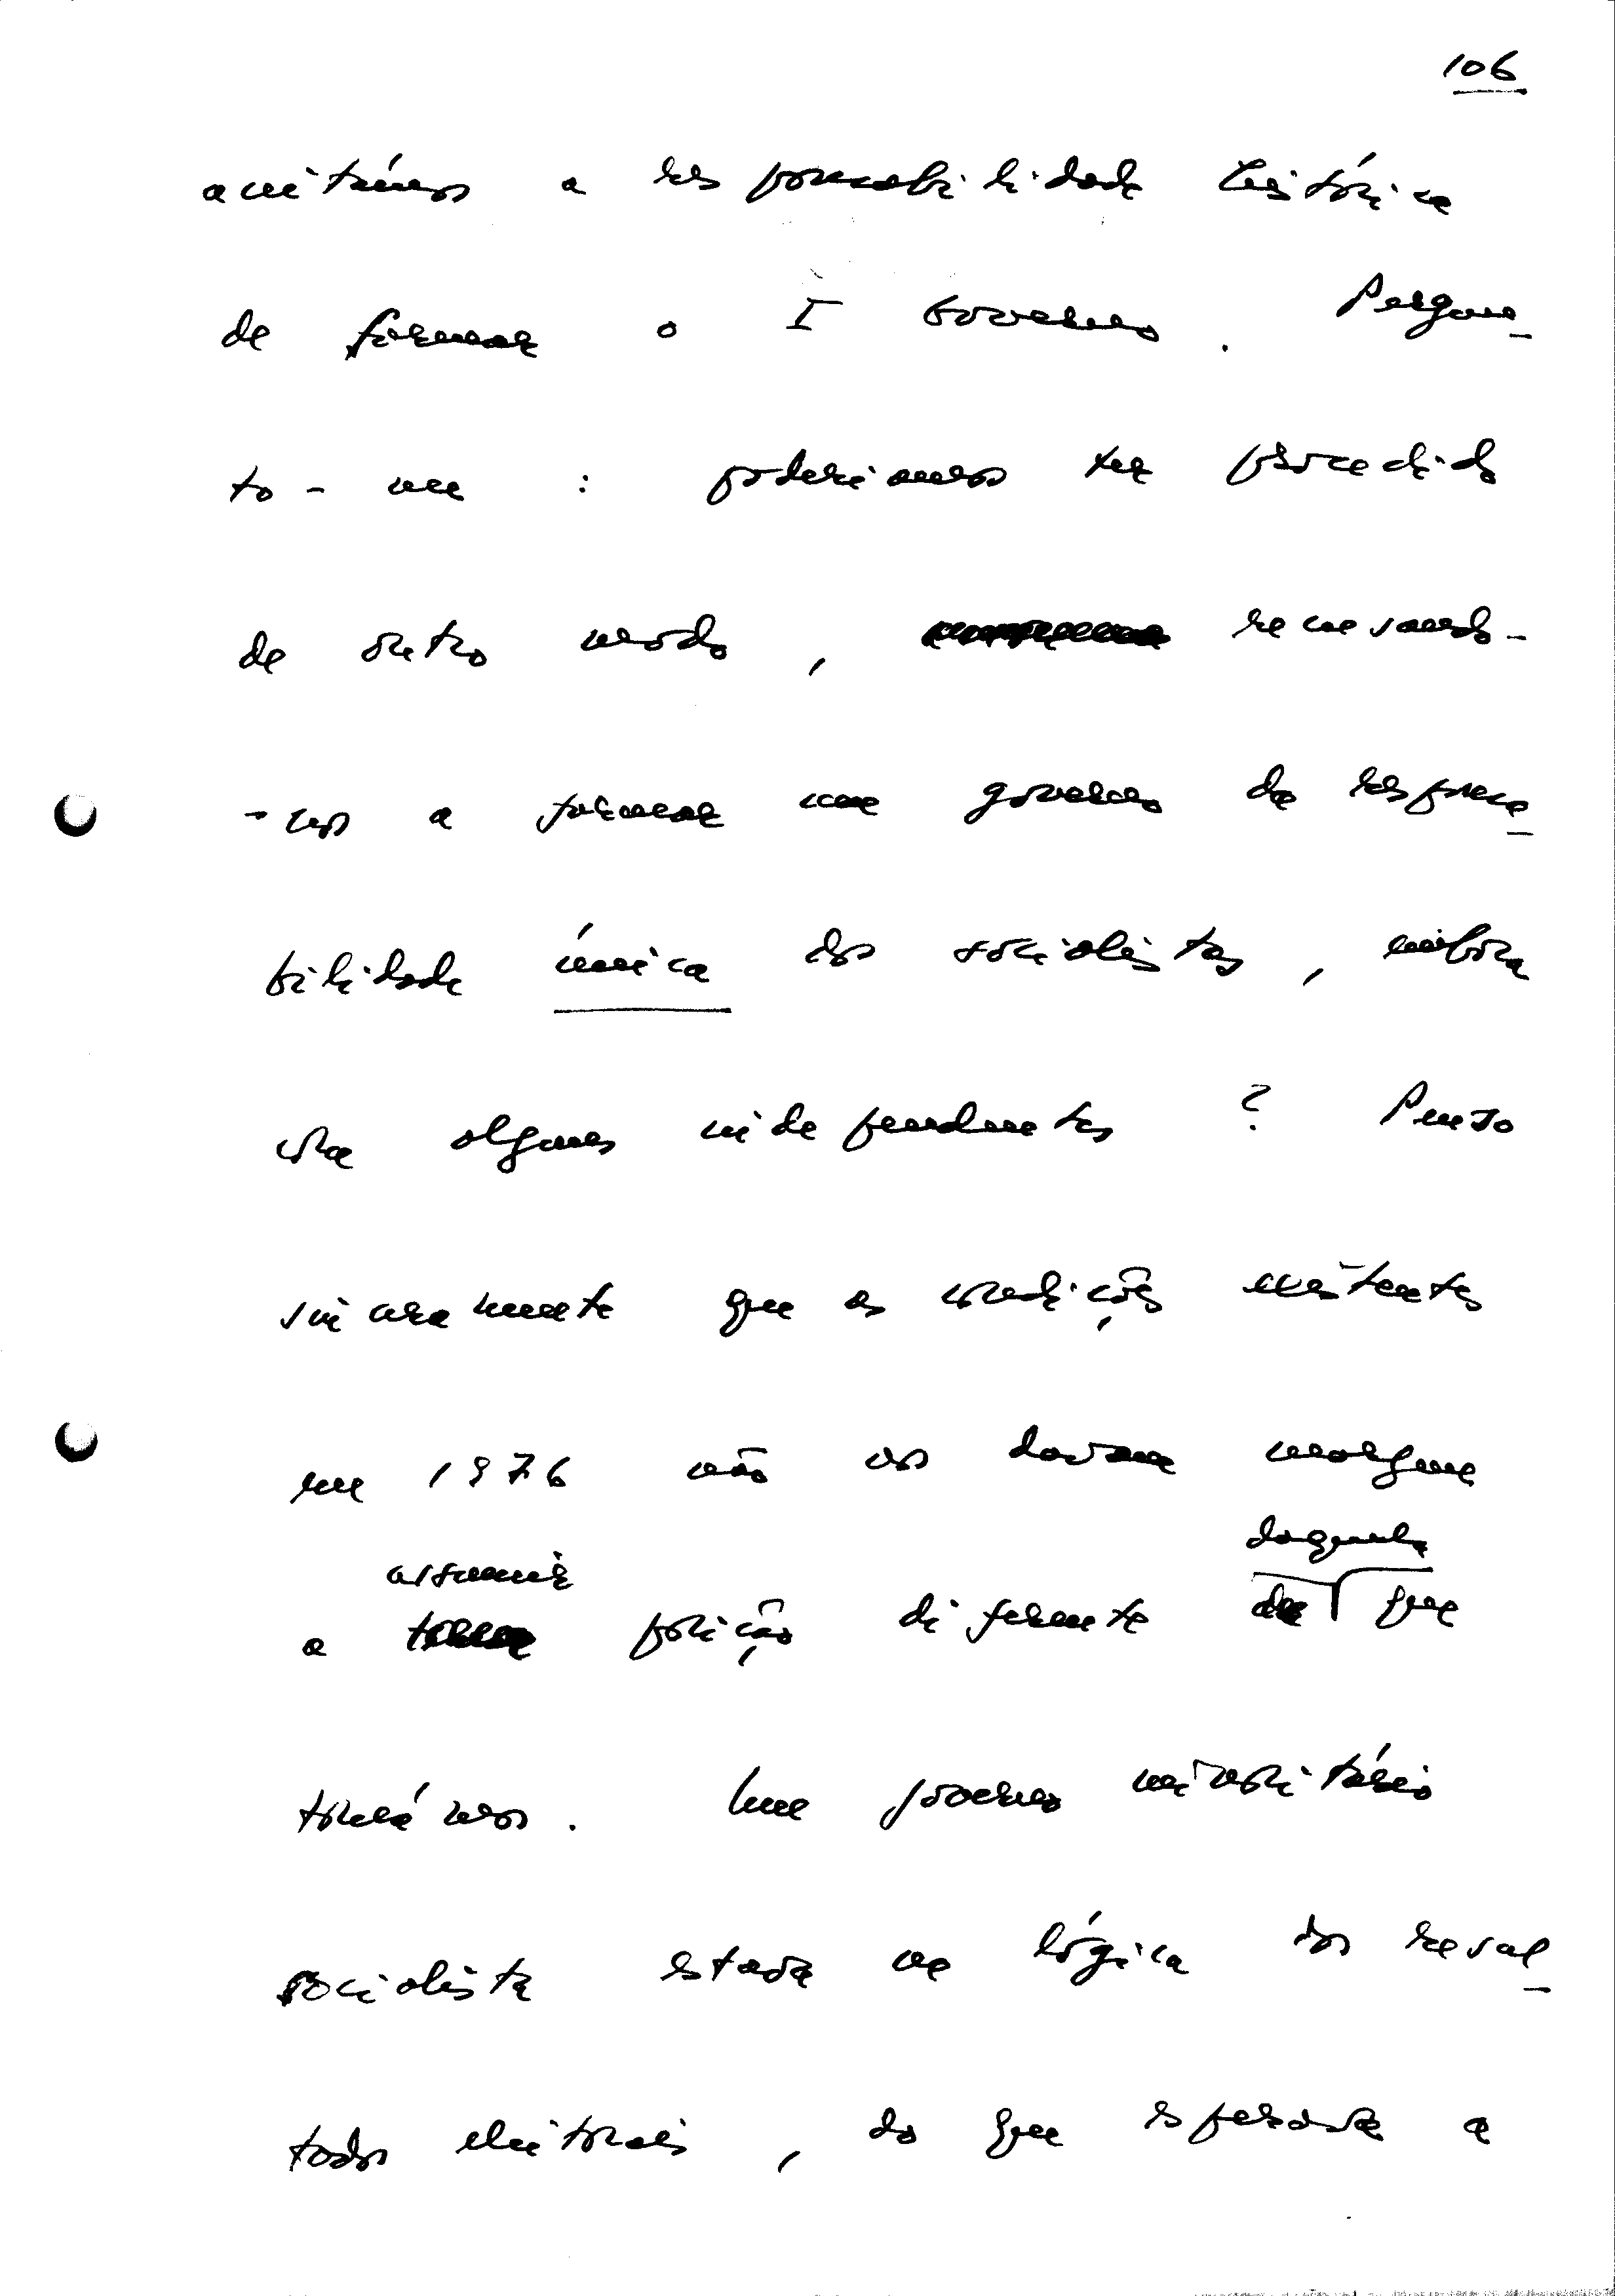 106
aceitámos a responsabilidade histórica
de formar o I Governo. Pergun-
to-me : poderíamos ter procedido
de outro modo, recusando-
-nos a formar um governo de respons
bilidade única dos socialistas, embora
com alguns independentes ? Penso
sinceramente que as condições existentes
em 1976 não nos davam margem
assumir daquela
a posição diferente que
tomámos. Um governo minoritário
socialista estava na lógica dos resul-
tados eleitorais, do que esperava a